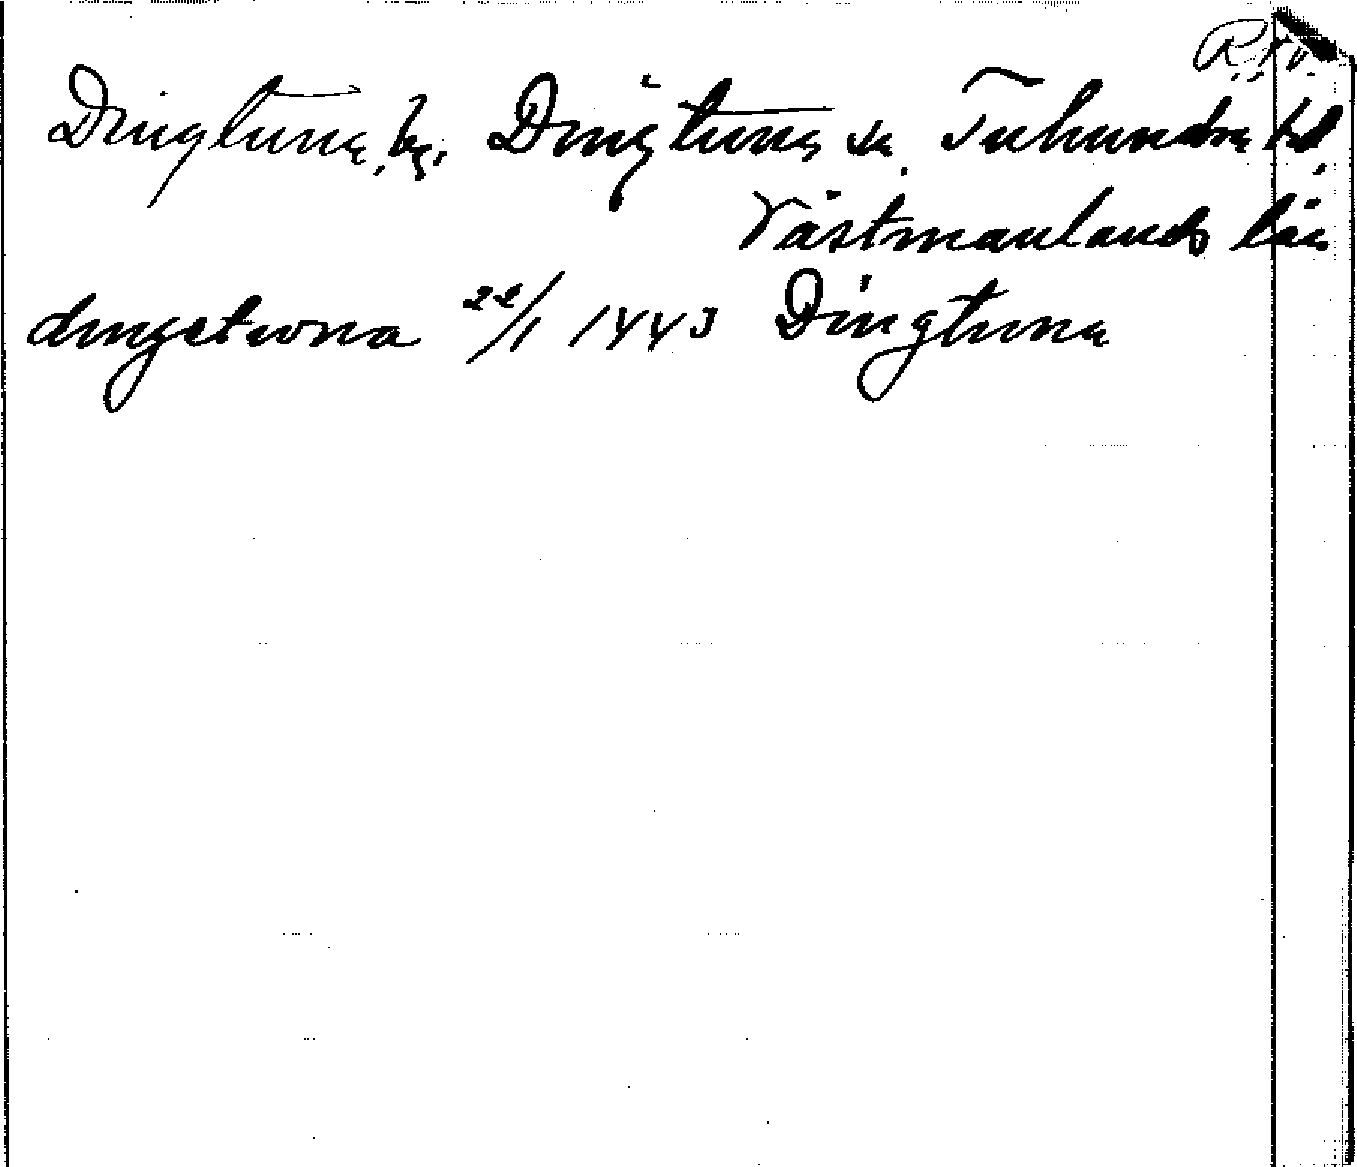 Dingtuna, by. Dingtuna sn. Tuhundra hd,
Västmanlands län
dingetwna 22/1 1443 Dingtuna